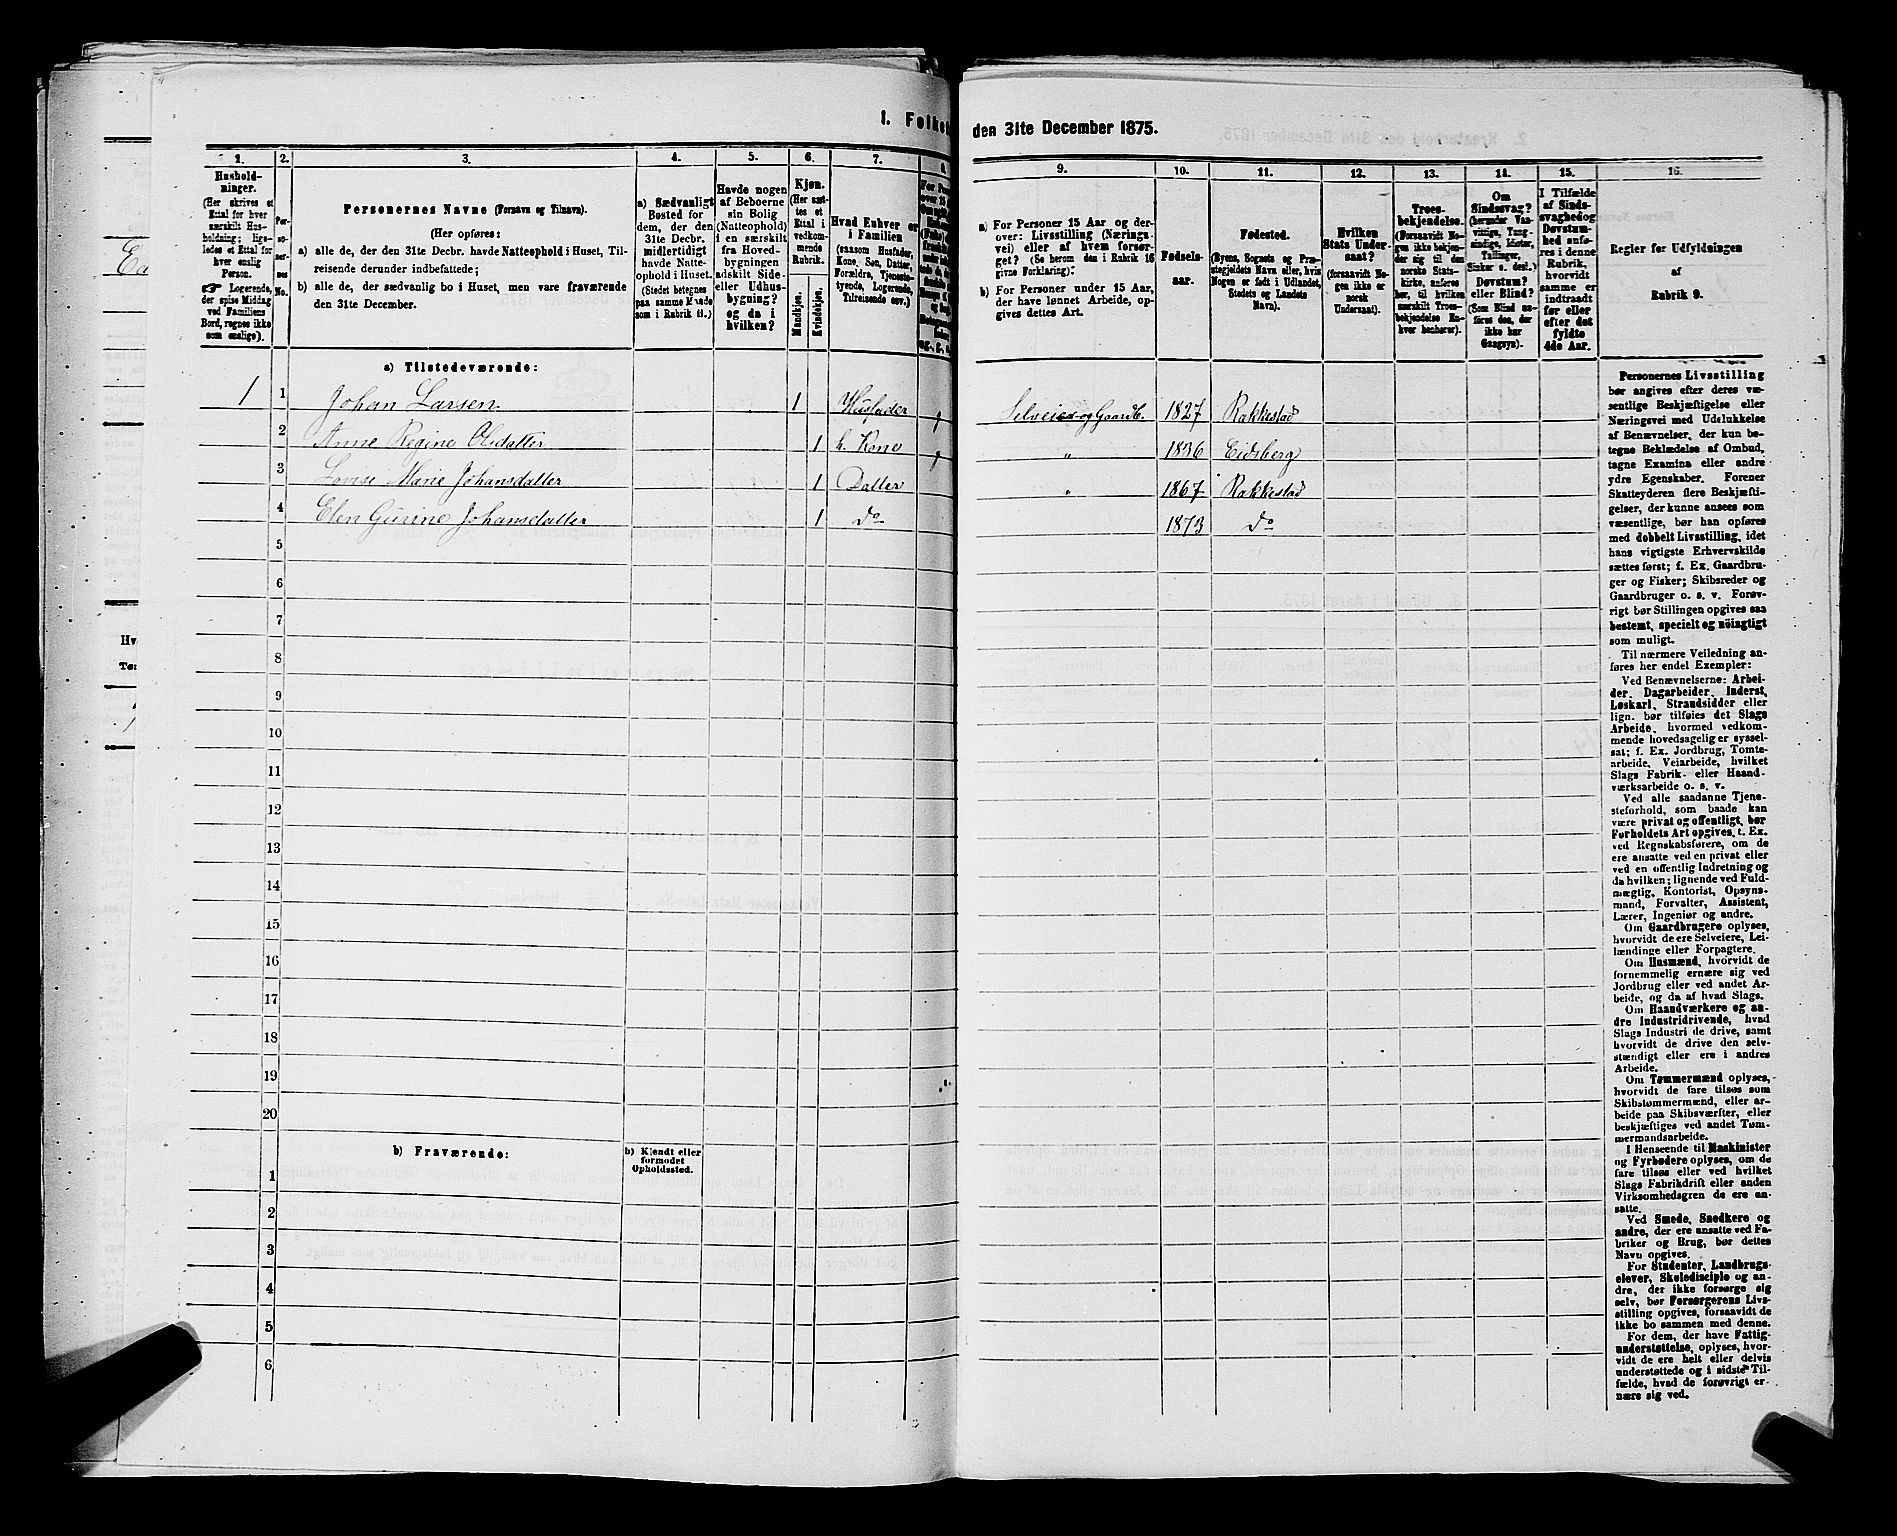 I. Folket
den 31te December 1875.
1.
2.
3.
4.
5.
6.
7.
8.
9.
10.
11.
12.
13.
14.
15.
16.
Hushold-
ninger.
(Her skrives et
Ettal for hver
særskilt Hus-
holdning; lige-
ledes et Ettal for
hver enslig
Person.
☞ Logerende,
der spise Middag
ved Familiens
Bord, regnes ikke
som enslige).
Per-
so-
ner-
nes
No.
Personernes Navne (Fornavn og Tilnavn).
(Her opføres:
a) alle de, der den 31te Decbr. havde Natteophold i Huset, Til-
reisende derunder indbefattede;
b) alle de, der sædvanlig bo i Huset, men vare fraværende
den 31te December.
a) Sædvanligt
Bosted for
dem, der den
31te Decbr.
midlertidigt
havde Natte-
ophold i Huset.
(Stedet betegnes
paa samme Maade
som i Rubrik 11.)
Havde nogen
af Beboerne
sin Bolig
(Natteophold)
i en særskilt
fra Hoved-
bygningen
adskilt Side-
eller Udhus-
bygning?
og da i
hvilken?
Kjøn.
(Her sæt-
tes et
Ettal i
vedkom-
mende
Rubrik.
Mandkjøn.
Kvindekjøn.
Hvad Enhver er
i Familien
(saasom Husfader,
Kone, Søn, Datter,
Forældre, Tjeneste-
tyende, Logerende,
Tilreisende osv.)
a) For Personer 15 Aar og der-
over: Livsstilling (Nærings-
vei) eller af hvem forsør-
get? (Se herom den i Rubrik 16
givne Forklaring).
b) For Personer under 15 Aar,
der have lønnet Arbeide, op-
gives dettes Art.
Fødsels-
aar.
Fødested.
(Byens, Sognets og Præ-
stegjeldets Navn eller, hvis
Nogen er født i Udlandet,
Stedets og Landets
Navn).
Hvilken
Stats Under-
saat?
(forsaavidt No-
gen ikke er
norsk
Undersaat).
Troes-
bekjendelse.
(Forsaavidt No-
gen ikke bekjen-
der sig til den
norske Stats-
kirke, anføres
her, til hvilken
særskilt Troes-
bekjendelse En-
hver henhører).
Om
Sindssvag?
(herunder Van-
vittige, Tung-
sindige, Idioter,
Tullinger,
Sinker o. desl.)
Døvstum?
eller Blind?
(Som Blind an-
føres den, der
ikke har
Gangsyn).
I Tilfælde
af Sinds-
svaghed og
Døvstum-
hed anfø-
res i denne
Rubrik,
hvorvidt
samme er
indtraadt
før eller
efter det
fyldte
4de Aar.
Regler for Udfyldningen
af
Rubrik 9.
a) Tilstedeværende:
1 1 Johan Larsen 1 Husfader g Selveier og Gaardb. 1827 Rakkestad
2 Anne Regine Olsdatter 1 h. Kone g " 1836 Eidsberg
3 Lovise Marie Johansdatter 1 Datter " 1867 Rakkestad
4 Elen Gurine Johansdatter 1 Do 1873 Do
5
6
7
8
9
10
11
12
13
14
15
16
17
18
19
20
b) Fraværende:
b) Kjendt eller
formodet
Opholdssted.
1
2
3
4
5
6
Personernes Livsstilling
bør angives efter deres væ-
sentlige Beskjæftigelse eller
Næringsvei med Udelukkelse
af Benævnelser, der kun be-
tegne Beklædelse af Ombud,
tagne Examina eller andre
ydre Egenskaber. Forener
Skatteyderen flere Beskjæfti-
gelser, der kunne ansees som
væsentlige, bør han opføres
med dobbelt Livsstilling, idet
hans vigtigste Erhvervskilde
sættes først; f. Ex. Gaardbru-
ger og Fisker; Skibsreder og
Gaardbruger o. s. v. Forøv-
rigt bør Stillingen opgives saa
bestemt, specielt og nöiagtigt
som muligt.
Til nærmere Veiledning an-
føres her endel Exempler:
Ved Benævnelserne: Arbei-
der, Dagarbeider, Inderst,
Løskarl, Strandsidder eller
lign. bør tilføies det Slags
Arbeide, hvormed vedkom-
mende hovedsagelig er syssel-
sat; f. Ex. Jordbrug, Tomte-
arbeide, Veiarbeide, hvilket
Slags Fabrik- eller Haand-
værksarbeide o. s. v.
Ved alle saadanne Tjene-
steforhold, som baade kan
være privat og offentligt, bør
Forholdets Art opgives, t. Ex.
ved Regnskabsførere, om de
ere ansatte ved en privat eller
ved en offentlig Indretning og
da hvilken; lignende ved Fuld-
mægtig, Kontorist, Opsyns-
mand, Forvalter, Assistent,
Lærer, Ingeniør og andre.
Om Gaardbrugere oplyses,
hvorvidt de ere Selveiere, Lei-
lændinge eller Forpagtere.
Om Husmænd, hvorvidt de
fornemmelig ernære sig ved
Jordbrug eller ved andet Ar-
beide, og da af hvad Slags.
Om Haandværkere og an-
dre Industridrivende, hvad
Slags Industri de drive, samt
hvorvidt de drive den selv-
stændigt eller ere i andres
Arbeide.
Om Tømmermænd oplyses,
hvorvidt de fare tilsøs som
Skibstømmermænd, eller ar-
beide paa Skibsværfter, eller
beskjæftiges ved andet Tøm-
mermandsarbeide.
I Henseende til Maskinister
og Fyrbødere oplyses, om de
fare tilsøs eller ved hvilket
Slags Fabrikdrift eller anden
Virksomhedsgren de ere an-
satte.
Ved Smede, Snedkere og
andre, der ere ansatte ved Fa-
briker og Brug, bør dettes
Navn opgives.
For Studenter, Landbrugs-
elever, Skoledisciple og an-
dre, der ikke forsørge sig
selv, bør Forsørgerens Livs-
stilling opgives, forsaavidt de
ikke bo sammen med denne.
For dem, der have Fattig-
understøttelse, oplyses, hvor-
vidt de ere helt eller delvis
understøttede og i sidste Til-
fælde, hvad de forøvrigt er-
nære sig ved.